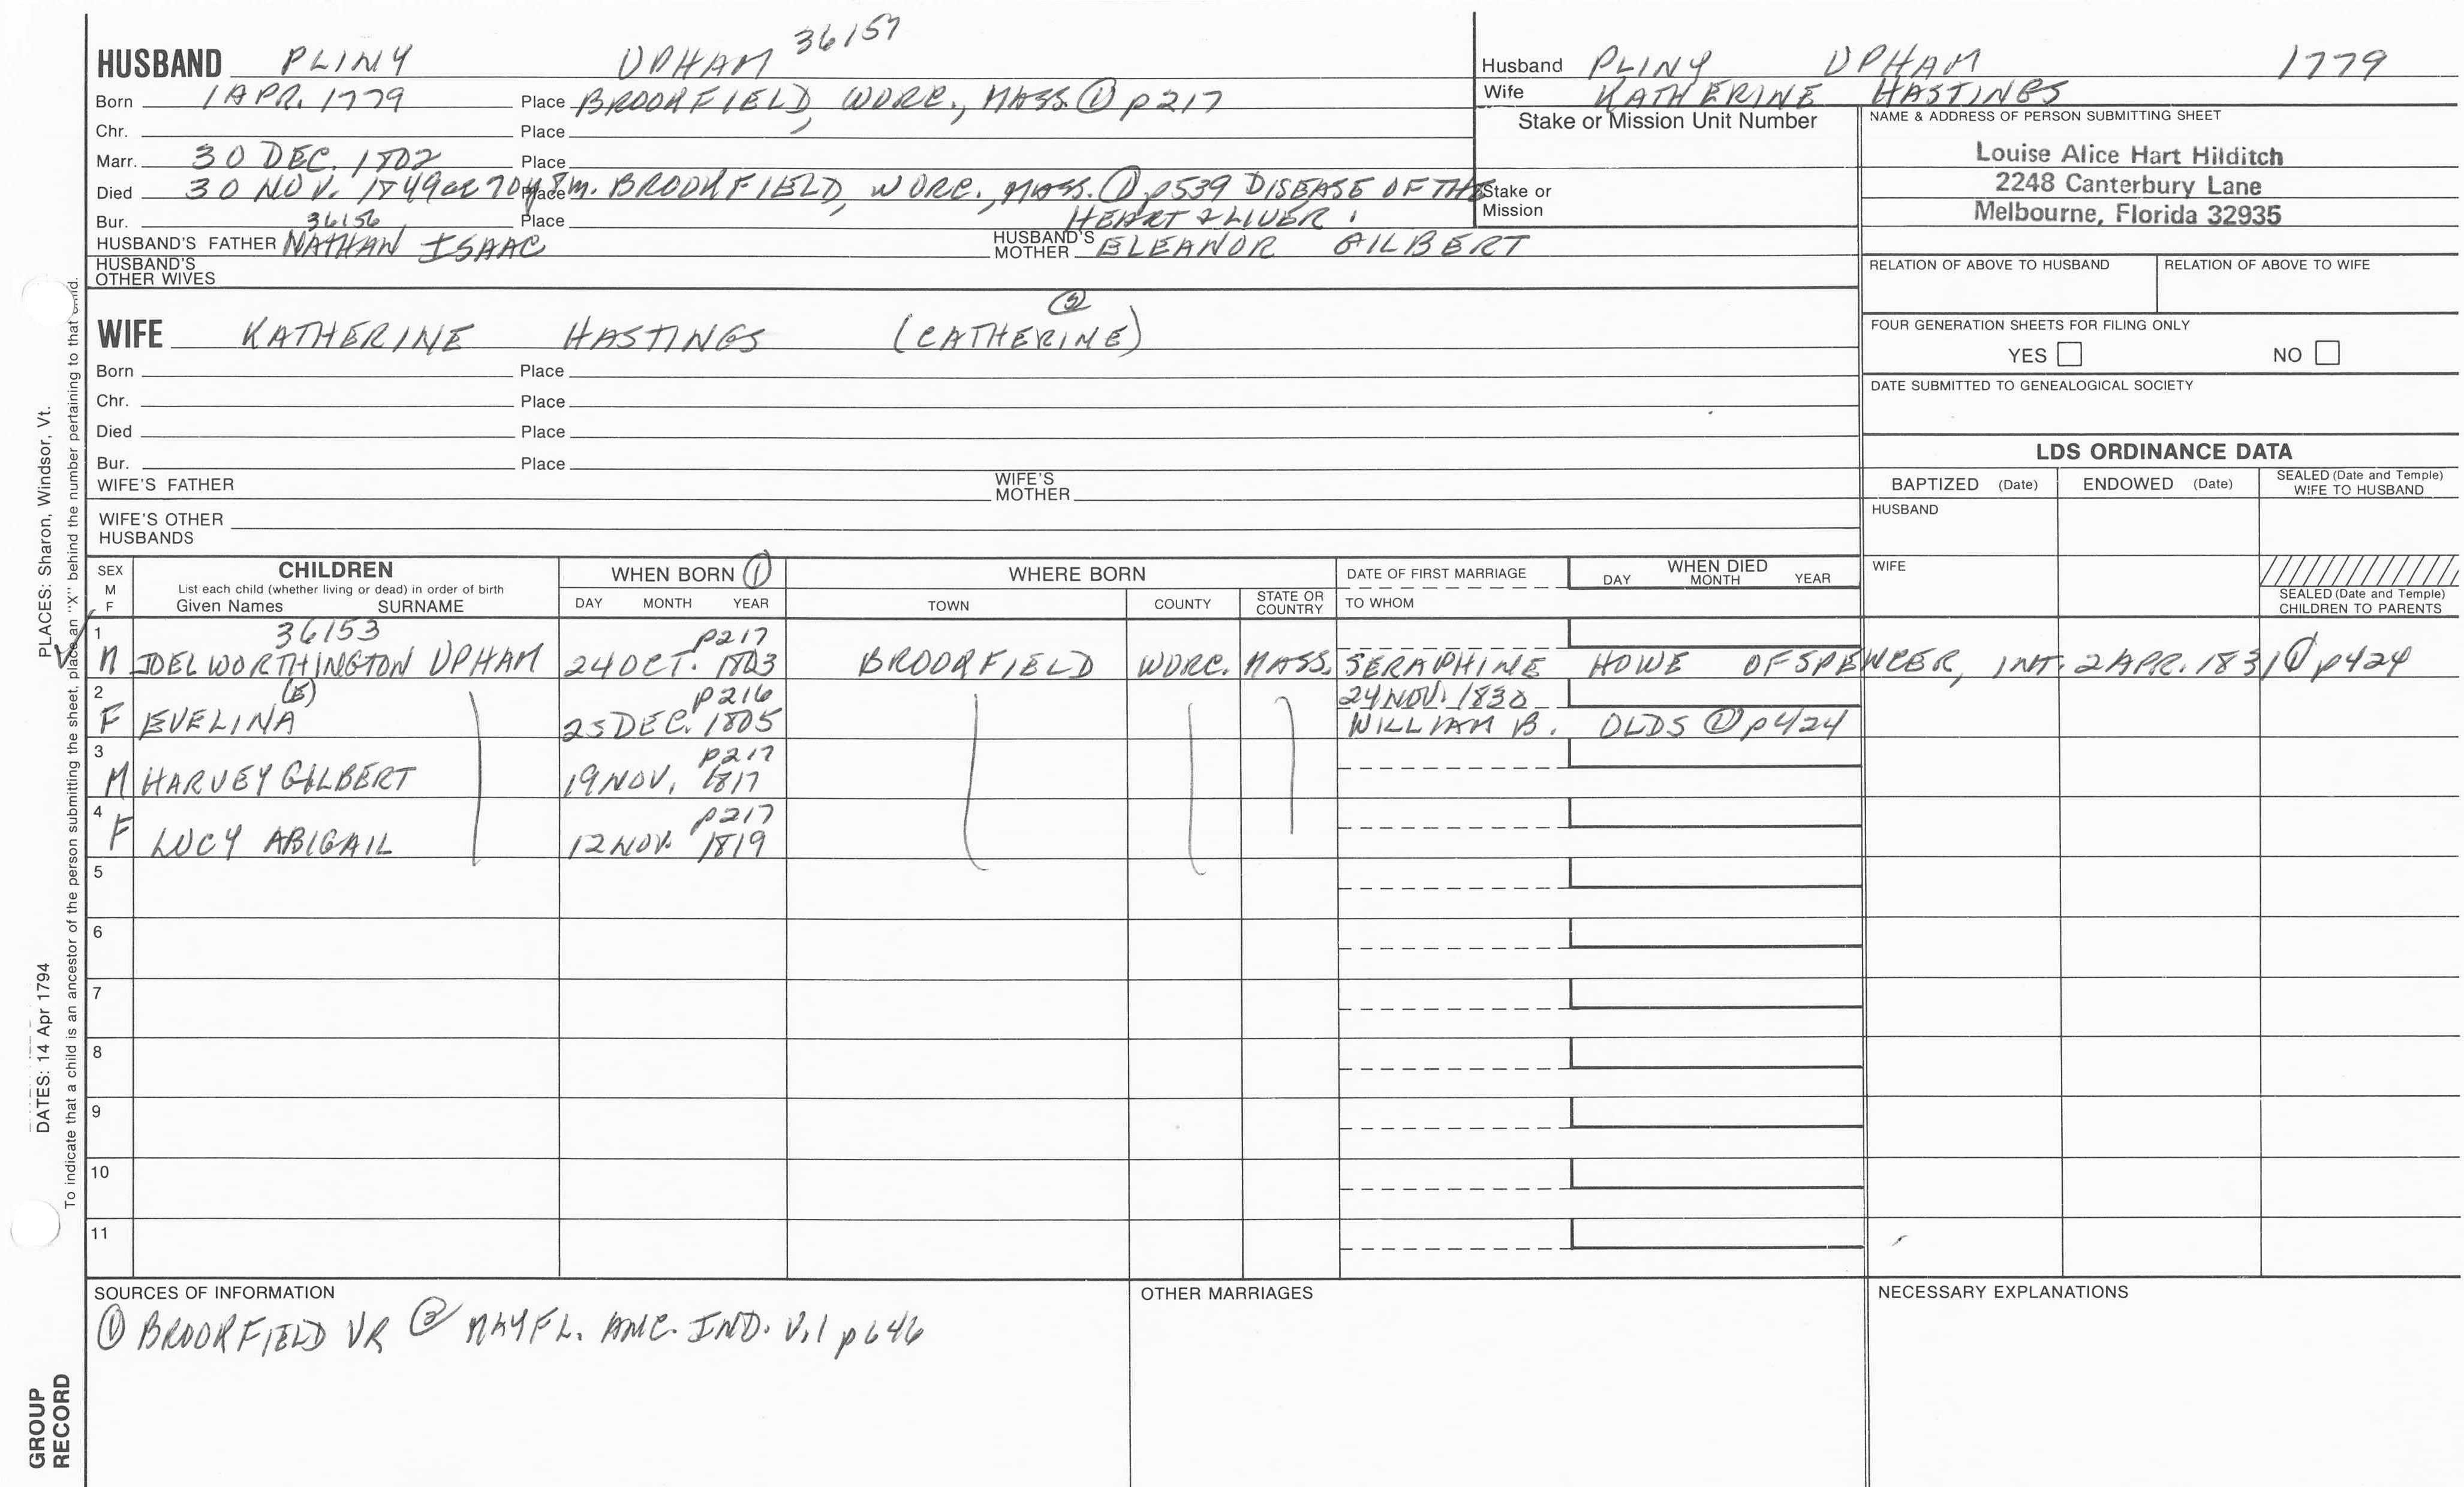 HUSBAND PLINY UPHAM 36157
Born 1 APR. 1779 Place BROOKFIELD, WORC., MASS. ① p217
Chr. Place
Marr. 30 DEC. 1802 Place
Died 30 NOV. 1849 ae 70y 8m. Place BROOKFIELD, WORC., MASS. ① p539 DISEASE OF THE
Bur. Place HEART & LIVER.
36156
HUSBAND'S FATHER NATHAN ISAAC HUSBAND'S MOTHER ELEANOR GILBERT
HUSBAND'S OTHER WIVES
Husband PLINY UPHAM 1779
Wife KATHERINE HASTINGS
Stake or Mission Unit Number
Stake or Mission
NAME & ADDRESS OF PERSON SUBMITTING SHEET
Louise Alice Hart Hilditch
2248 Canterbury Lane
Melbourne, Florida 32935
RELATION OF ABOVE TO HUSBAND RELATION OF ABOVE TO WIFE
FOUR GENERATION SHEETS FOR FILING ONLY
YES NO
DATE SUBMITTED TO GENEALOGICAL SOCIETY
②
WIFE KATHERINE HASTINGS (CATHERINE)
Born Place
Chr. Place
Died Place
Bur. Place
WIFE'S FATHER WIFE'S MOTHER
WIFE'S OTHER HUSBANDS
LDS ORDINANCE DATA
BAPTIZED (Date) ENDOWED (Date) SEALED (Date and Temple) WIFE TO HUSBAND
HUSBAND
WIFE
SEALED (Date and Temple) CHILDREN TO PARENTS
SEX M F
CHILDREN
List each child (whether living or dead) in order of birth
Given Names SURNAME
WHEN BORN ①
DAY MONTH YEAR
WHERE BORN
TOWN COUNTY STATE OR COUNTRY
DATE OF FIRST MARRIAGE
TO WHOM
WHEN DIED
DAY MONTH YEAR
1 36153 p217
M JOEL WORTHINGTON UPHAM 24 OCT. 1803 BROOKFIELD WORC. MASS. SERAPHINE HOWE OF SPENCER, INT. 2 APR. 1831 ① p424
2 (E) p216 24 NOV. 1830
F EVELINA 25 DEC. 1805 WILLIAM B. OLDS ① p424
3 p217
M HARVEY GILBERT 19 NOV. 1817
4 p217
F LUCY ABIGAIL 12 NOV. 1819
5
6
7
8
9
10
11
SOURCES OF INFORMATION
① BROOKFIELD VR ② MAYFL. ANC. IND. V.1 p646
OTHER MARRIAGES
NECESSARY EXPLANATIONS
PLACES: Sharon, Windsor, Vt.
DATES: 14 Apr 1794
To indicate that a child is an ancestor of the person submitting the sheet, place an "X" behind the number pertaining to that child.
GROUP RECORD